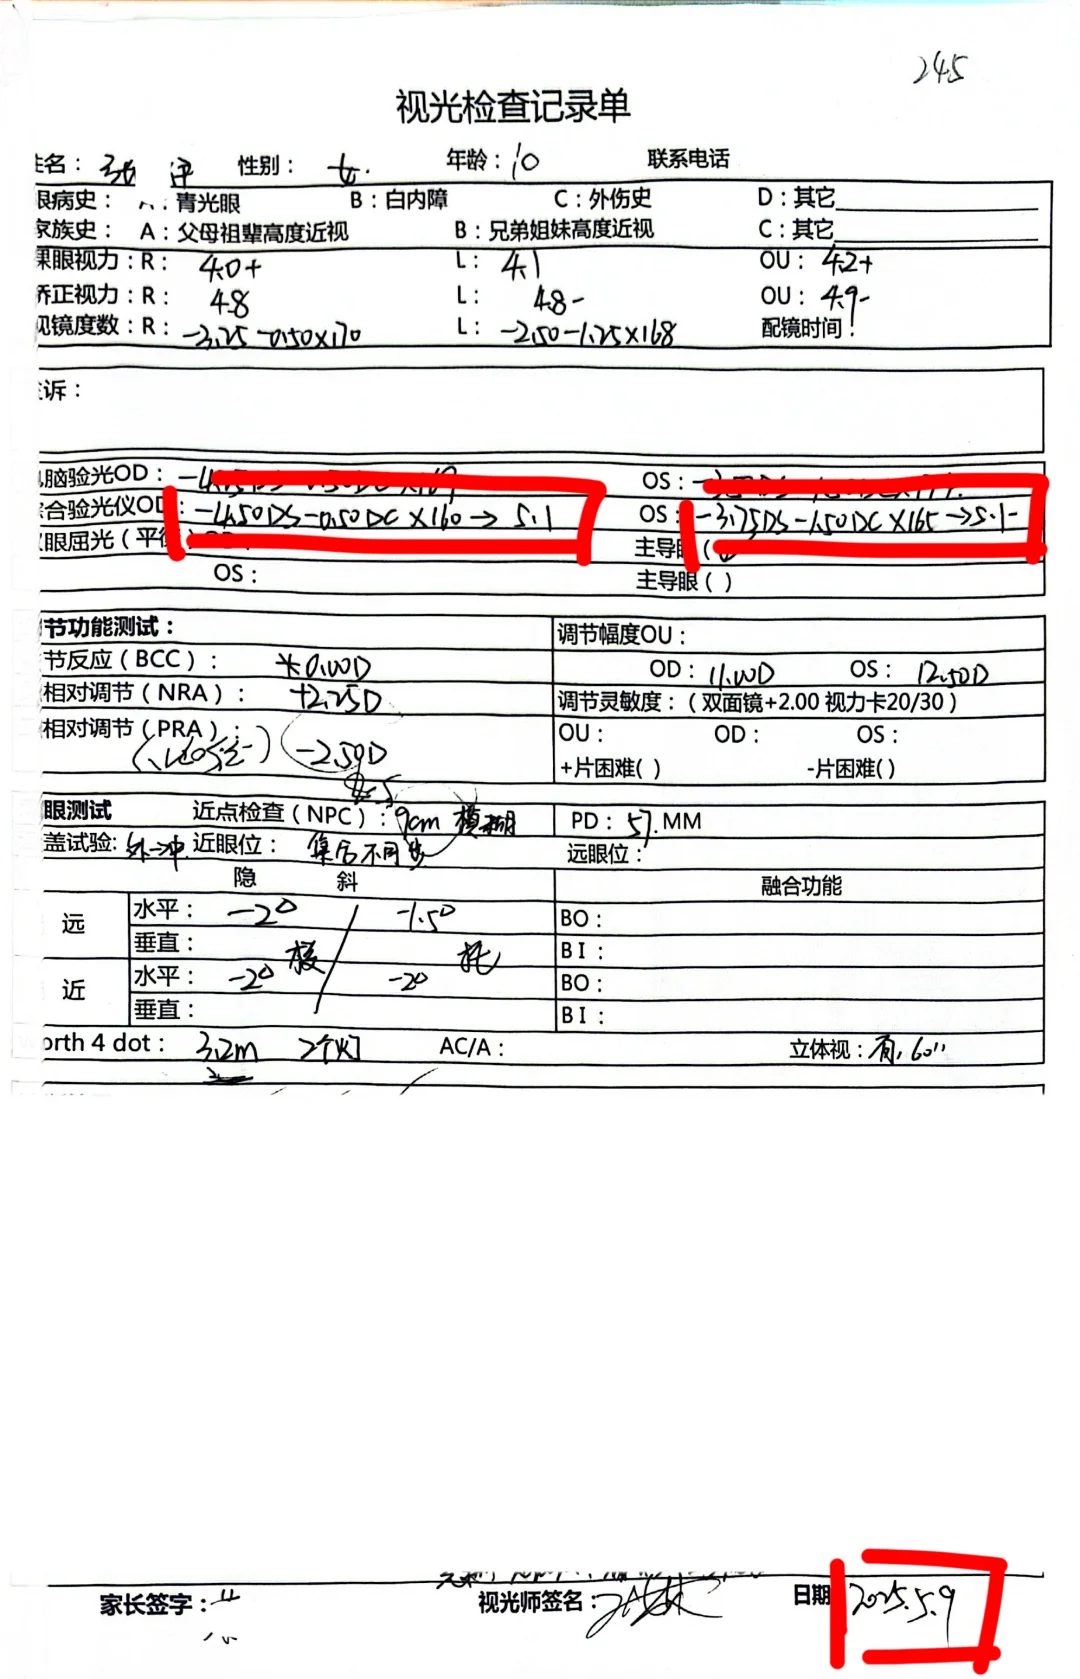 245
视光检查记录单
姓名：张 性别：女. 年龄：10 联系电话
眼病史：A：青光眼 B：白内障 C：外伤史 D：其它
家族史：A：父母祖辈高度近视 B：兄弟姐妹高度近视 C：其它
裸眼视力：R：4.0+ L：4.1 OU：4.2+
矫正视力：R：4.8 L：4.8- OU：4.9-
现镜度数：R：-3.25-0.50×170 L：-2.50-1.25×168 配镜时间：
主诉：
电脑验光OD： OS：
综合验光仪OD：-4.50DS-0.50DC×160→5.1 OS：-3.75DS-1.50DC×165→5.1-
双眼屈光（平衡） 主导眼（
OS： 主导眼( )
调节功能测试： 调节幅度OU：
节反应（BCC）：*0.00D OD：11.00D OS：12.50D
相对调节（NRA）：+2.25D 调节灵敏度：（双面镜+2.00 视力卡20/30）
相对调节（PRA）： -2.50D OU： OD： OS：
+片困难( ) -片困难( )
眼测试 近点检查（NPC）：9cm 模糊 PD：57.MM
盖试验：外→冲 近眼位：集合不同步 远眼位：
隐 斜 融合功能
远 水平：-2△ / -1.5△ BO：
垂直： BI：
近 水平：-2△ -2△ BO：
垂直： BI：
orth 4 dot：3.2m 2个灯 AC/A： 立体视：有，60''
家长签字： 视光师签名： 日期 2025.5.9